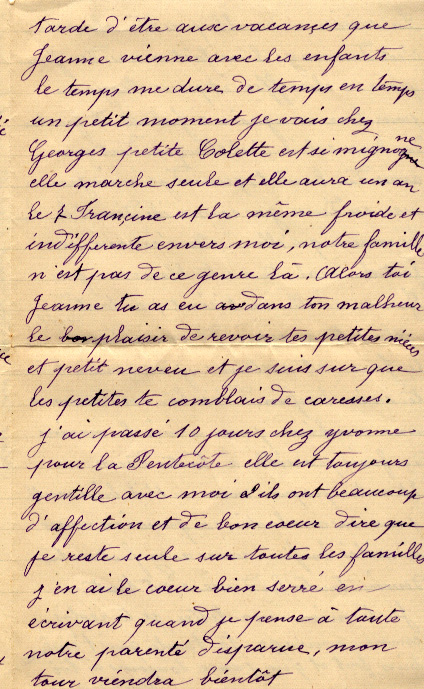 tarde d'être aux vacançes que
Jeanne vienne avec les enfants
le temps me dure de temps en temps
un petit moment je vais chez
Georges petite Colette est si mignonne
elle marche seule et elle aura un an
le 7 Françine est la même froide et
indifferente envers moi, notre famille
n'est pas de ce genre là. Alors toi
Jeanne tu as eu dans ton malheur
le bon plaisir de revoir tes petites nièces
et petit neveu et je suis sur que
les petites te comblais de caresses.
j'ai passé 10 jours chez yvonne
pour la Pentecôte elle est toujours
gentille avec moi ils ont beaucoup
d'affection et de bon coeur dire que
je reste seule sur toutes les familles
j'en ai le coeur bien serré en
écrivant quand je pense à toute
notre parenté disparue, mon
tour viendra bientôt